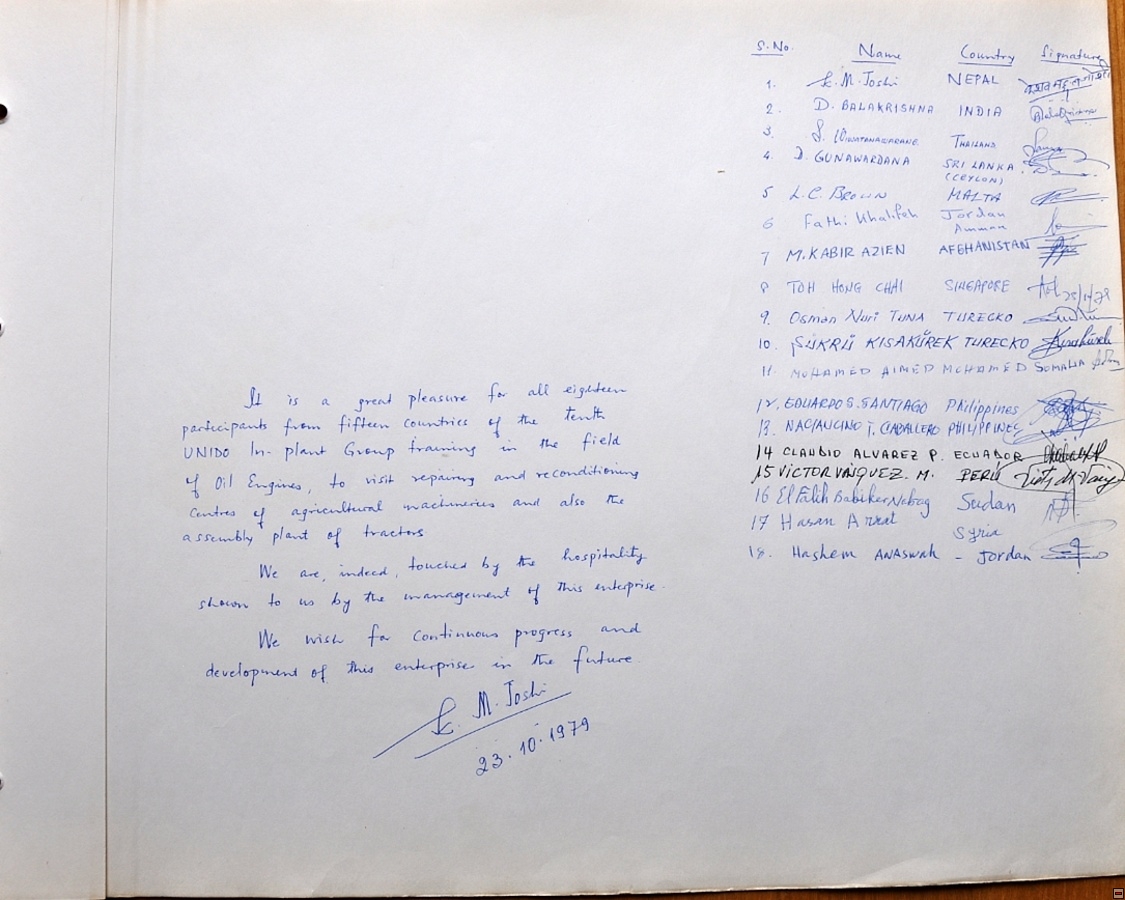 It is a great pleasure for all eighteen
participants from fifteen countries of the tenth
UNIDO In-plant Group training in the field
of Oil Engines, to visit repairing and reconditioning
centres of agricultural machineries and also the
assembly plant of tractors
We are, indeed, touched by the hospitality
shown to us by the management of this enterprise.
We wish for continuous progress and
development of this enterprise in the future.
K. M. Joshi
23.10.1979
S.No. Name Country Signature
1. K. M. Joshi NEPAL
2. D. BALAKRISHNA INDIA
3 THAILAND
4. D. GUNAWARDANA SRI LANKA
(CEYLON)
5 L.C. BROWN MALTA
6 Fathi Khalifeh Jordan
Amman
7 M. KABIR AZIEN AFGHANISTAN
8 TOH HONG CHAI SINGAPORE
9. Osman Nuri TUNA TURECKO
10. ŞÜKRÜ KISAKÜREK TURECKO
11. MOHAMED AHMED MOHAMED SOMALIA
12. EDUARDO S. SANTIAGO Philippines
13. T. CABALLERO PHILIPPINES
14 CLAUDIO ALVAREZ P. ECUADOR
15 VICTOR VASQUEZ. M. PERÚ
16 El Fatih Babiker Sudan
17 Hasan
Syria
18. Hashem ANASWAH - Jordan